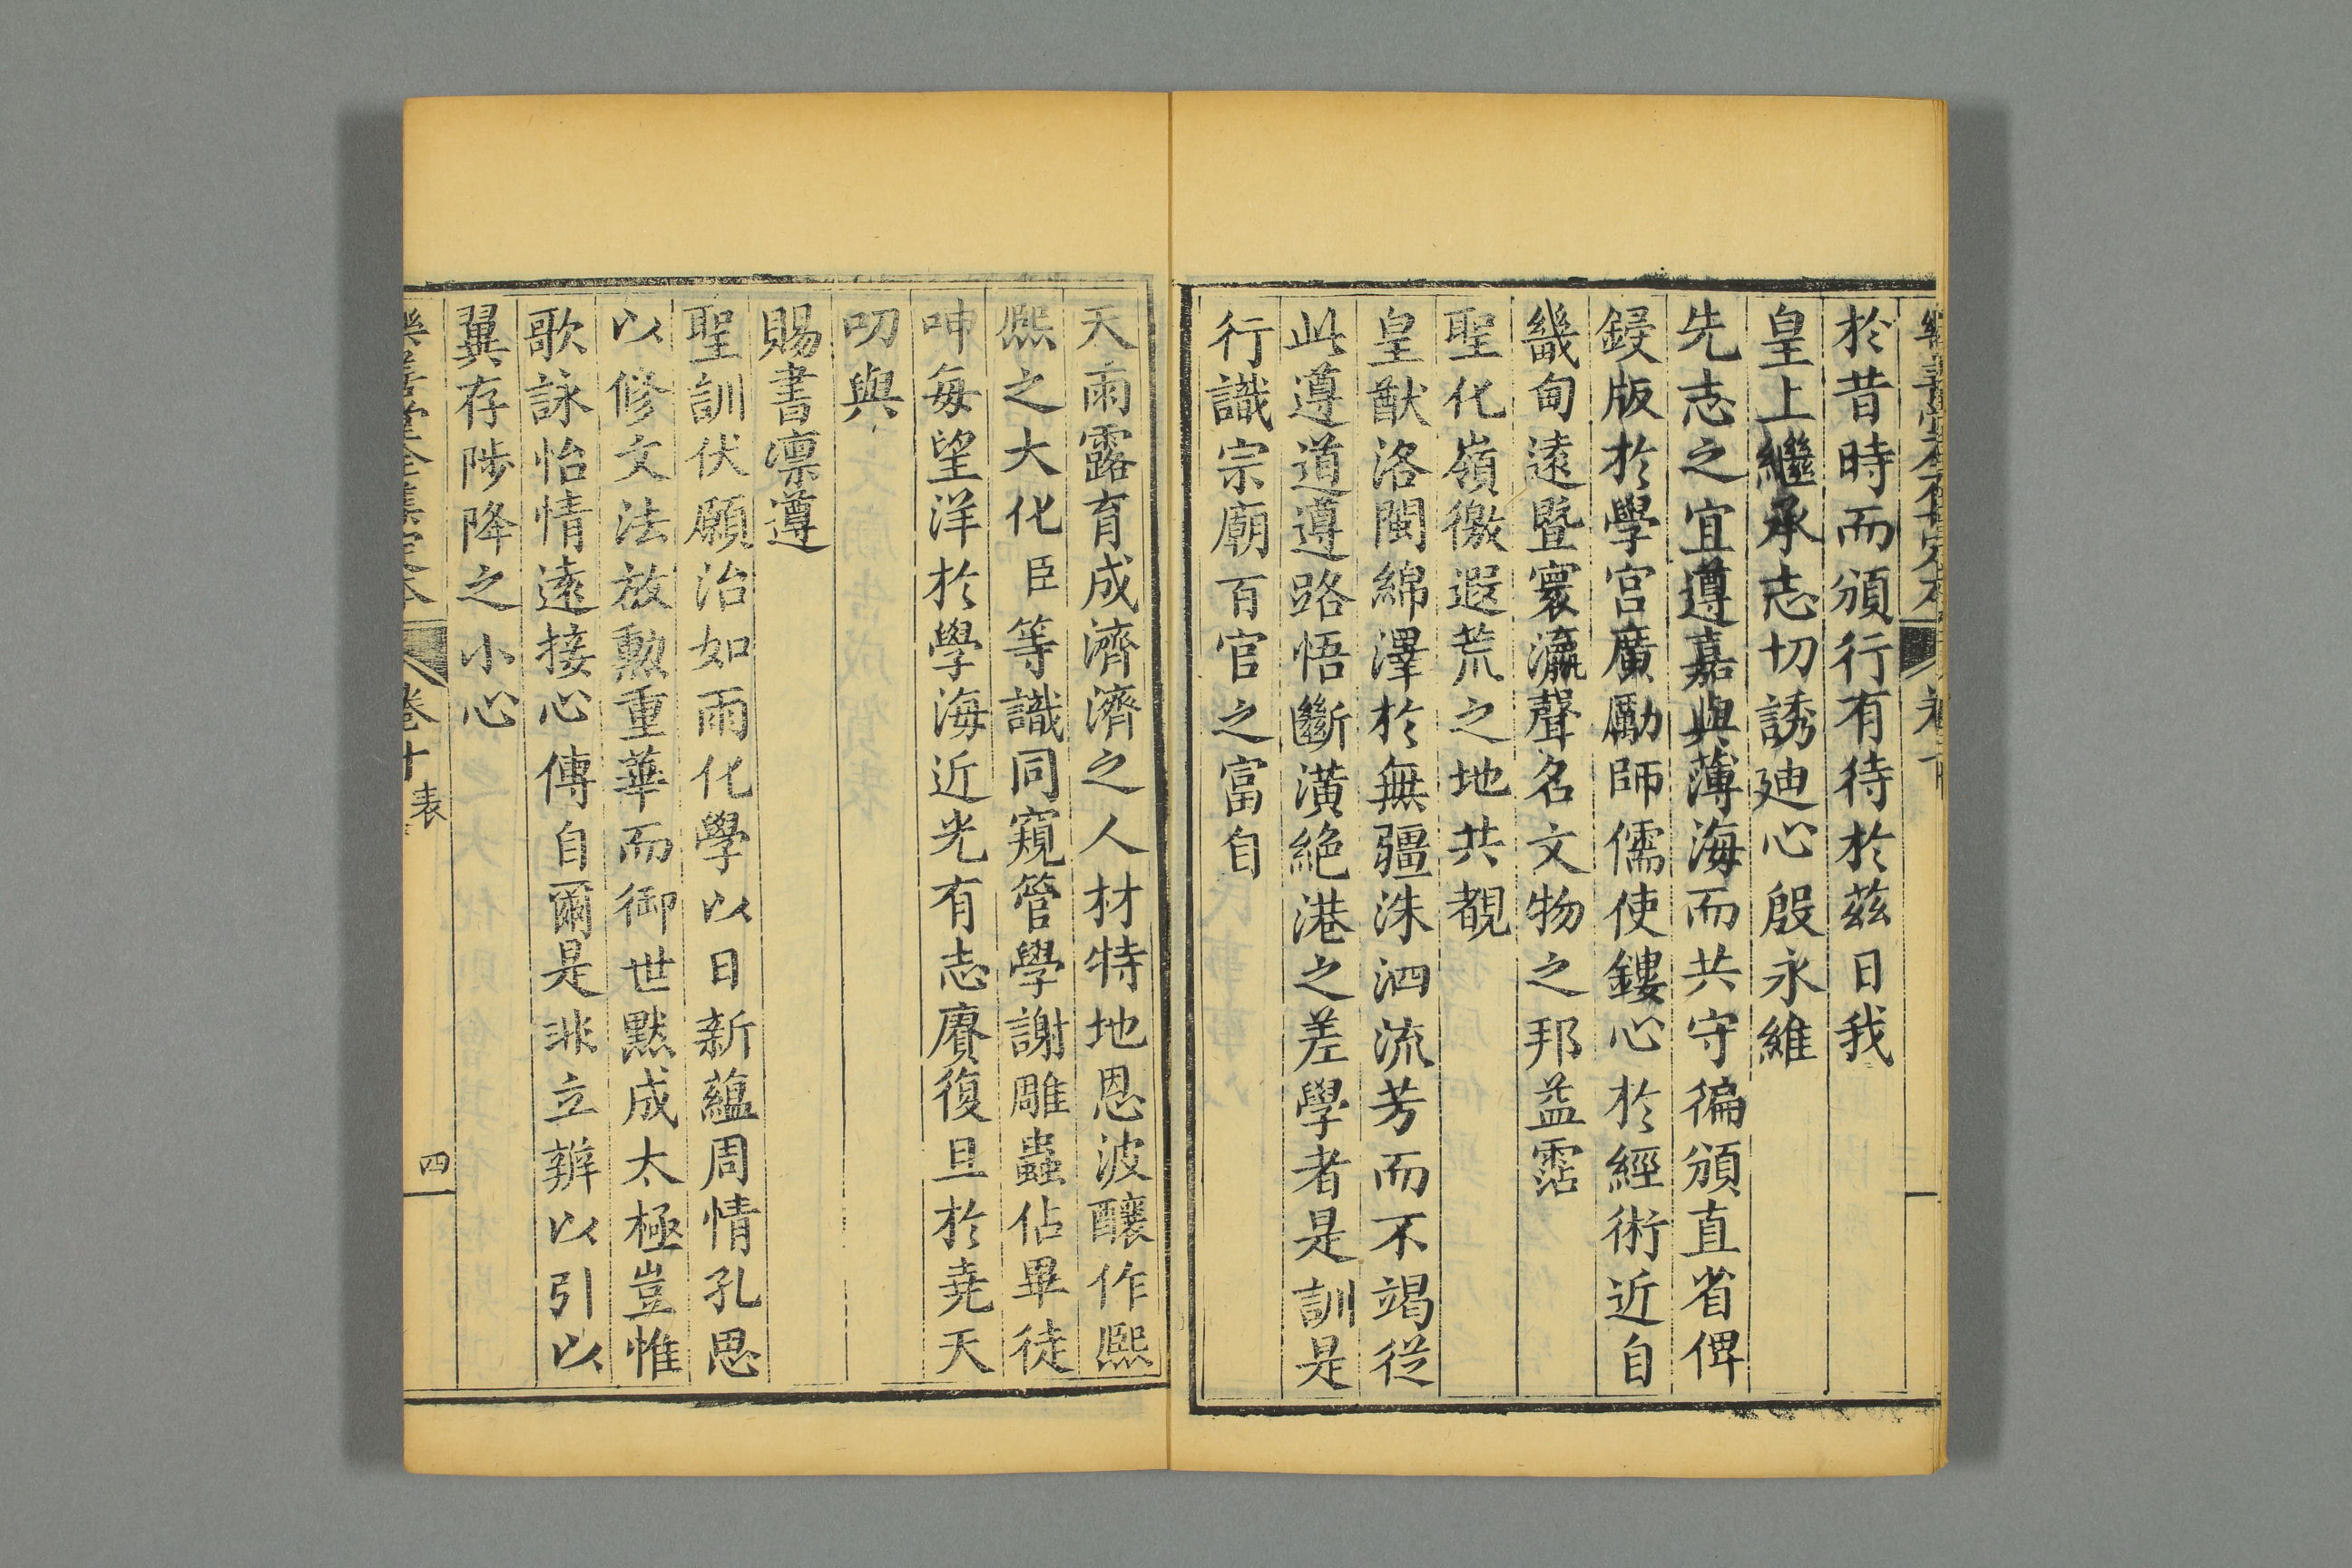 於昔時而頒行有待於茲日我
皇上繼承志切誘廸心殷永維
先志之宜遵嘉與薄海而共守徧頒直省俾
鋟版於學宮廣勵師儒使鏤心於經術近自
畿甸遠暨寰瀛聲名文物之邦益霑
聖化嶺徼遐荒之地共覩
皇猷洛閩綿澤於無疆洙泗流芳而不竭從
此遵道遵路悟斷潢絕港之差學者是訓是
行識宗廟百官之富自
天雨露育成濟濟之人材特地恩波釀作熙
熙之大化臣等識同窺管學謝雕蟲佔畢徒
呻每望洋於學海近光有志賡復旦於堯天
叨與
賜書凛遵
聖訓伏願治如雨化學以日新蘊周情孔思
以修文法放勲重華而御世默成太極豈惟
歌詠怡情遠接心傳自爾是非立辨以引以
翼存陟降之小心
樂善堂全集定本 卷十 表 四